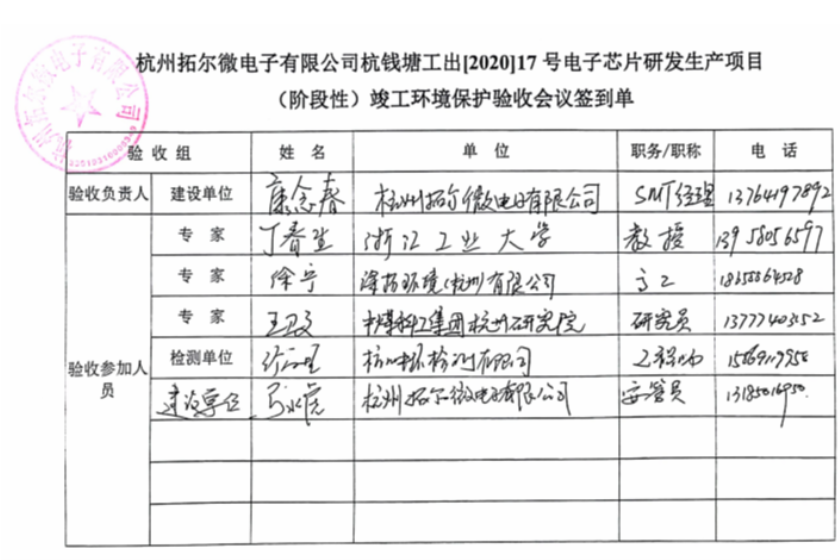 杭州拓尔微电子有限公司
杭州拓尔微电子有限公司杭钱塘工出[2020]17 号电子芯片研发生产项目
（阶段性）竣工环境保护验收会议签到单
验 收 组 姓 名 单 位 职务/职称 电 话
验收负责人 建设单位 康念春 杭州拓尔微电子有限公司 SMT经理 13764197892
专 家 丁春生 浙江工业大学 教授 13958056597
专 家 徐宁 环境(杭州)有限公司 高工
专 家 王卫文 中煤科工集团杭州研究院 研究员 13777403152
验收参加人员 检测单位 杭州 检测有限公司 工程师
建设单位 杭州拓尔微电子有限公司 安管员 13185016950